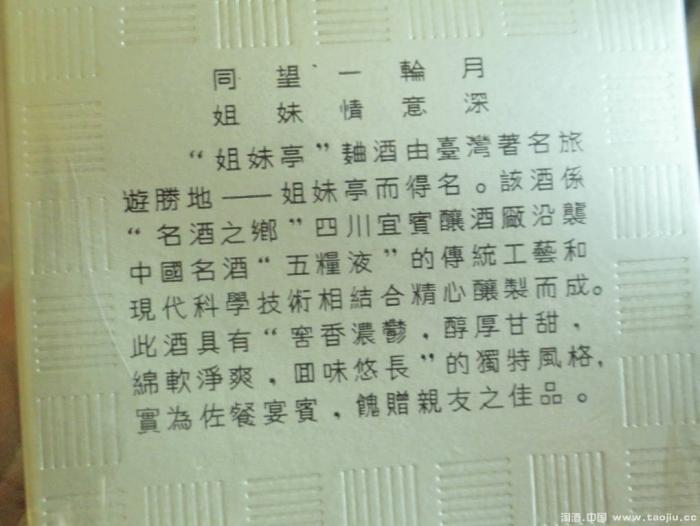 同望一輪月
姐妹情意深
“姐妹亭”麯酒由臺灣著名旅
遊勝地——姐妹亭而得名。該酒係
“名酒之鄉”四川宜賓釀酒廠沿襲
中國名酒“五糧液”的傳統工藝和
現代科學技術相結合精心釀製而成。
此酒具有“窖香濃鬱，醇厚甘甜，
綿軟淨爽，回味悠長”的獨特風格，
實為佐餐宴賓，餽贈親友之佳品。
淘酒.中国 www.taojiu.cc